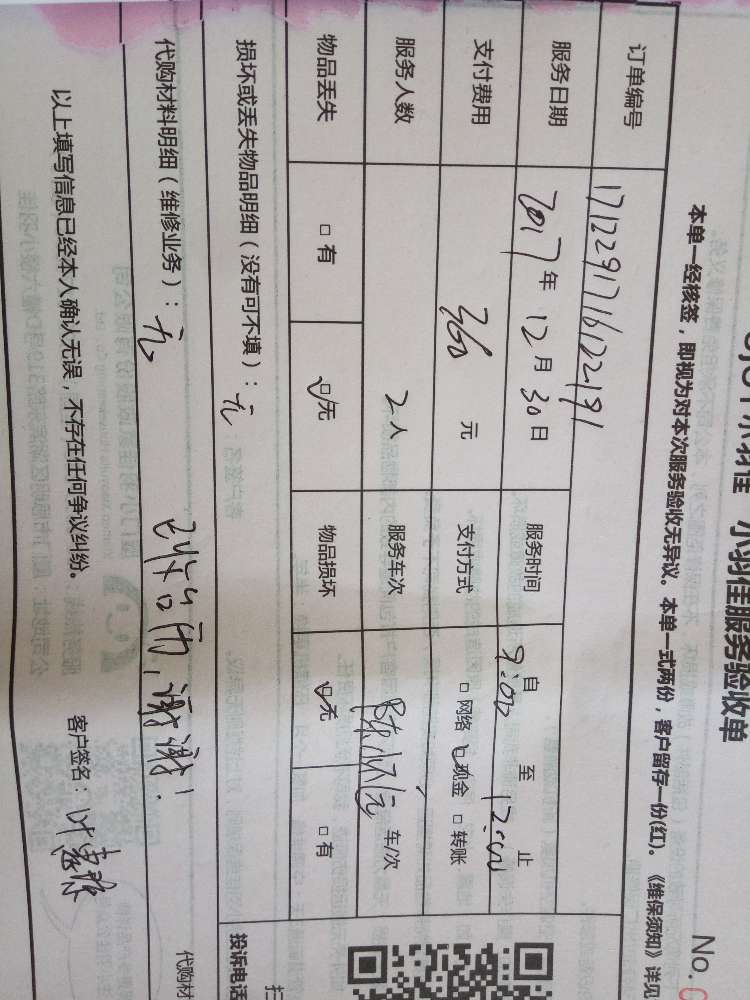 小羽佳服务验收单
No.
本单一经核签，即视为对本次服务验收无异议。本单一式两份，客户留存一份(红)。《维保须知》详见
订单编号 17122917612219
服务日期 2017年12月30日 服务时间 自9:00至12:00止
支付费用 360元 支付方式 □网络 ☑现金 □转账
服务人数 2人 服务车次 车/次
物品丢失 □有 ☑无 物品损坏 ☑无 □有
损坏或丢失物品明细（没有可不填）：无
投诉电话
代购材料明细（维修业务）：无
谢谢！
代购材
以上填写信息已经本人确认无误，不存在任何争议纠纷。
客户签名：